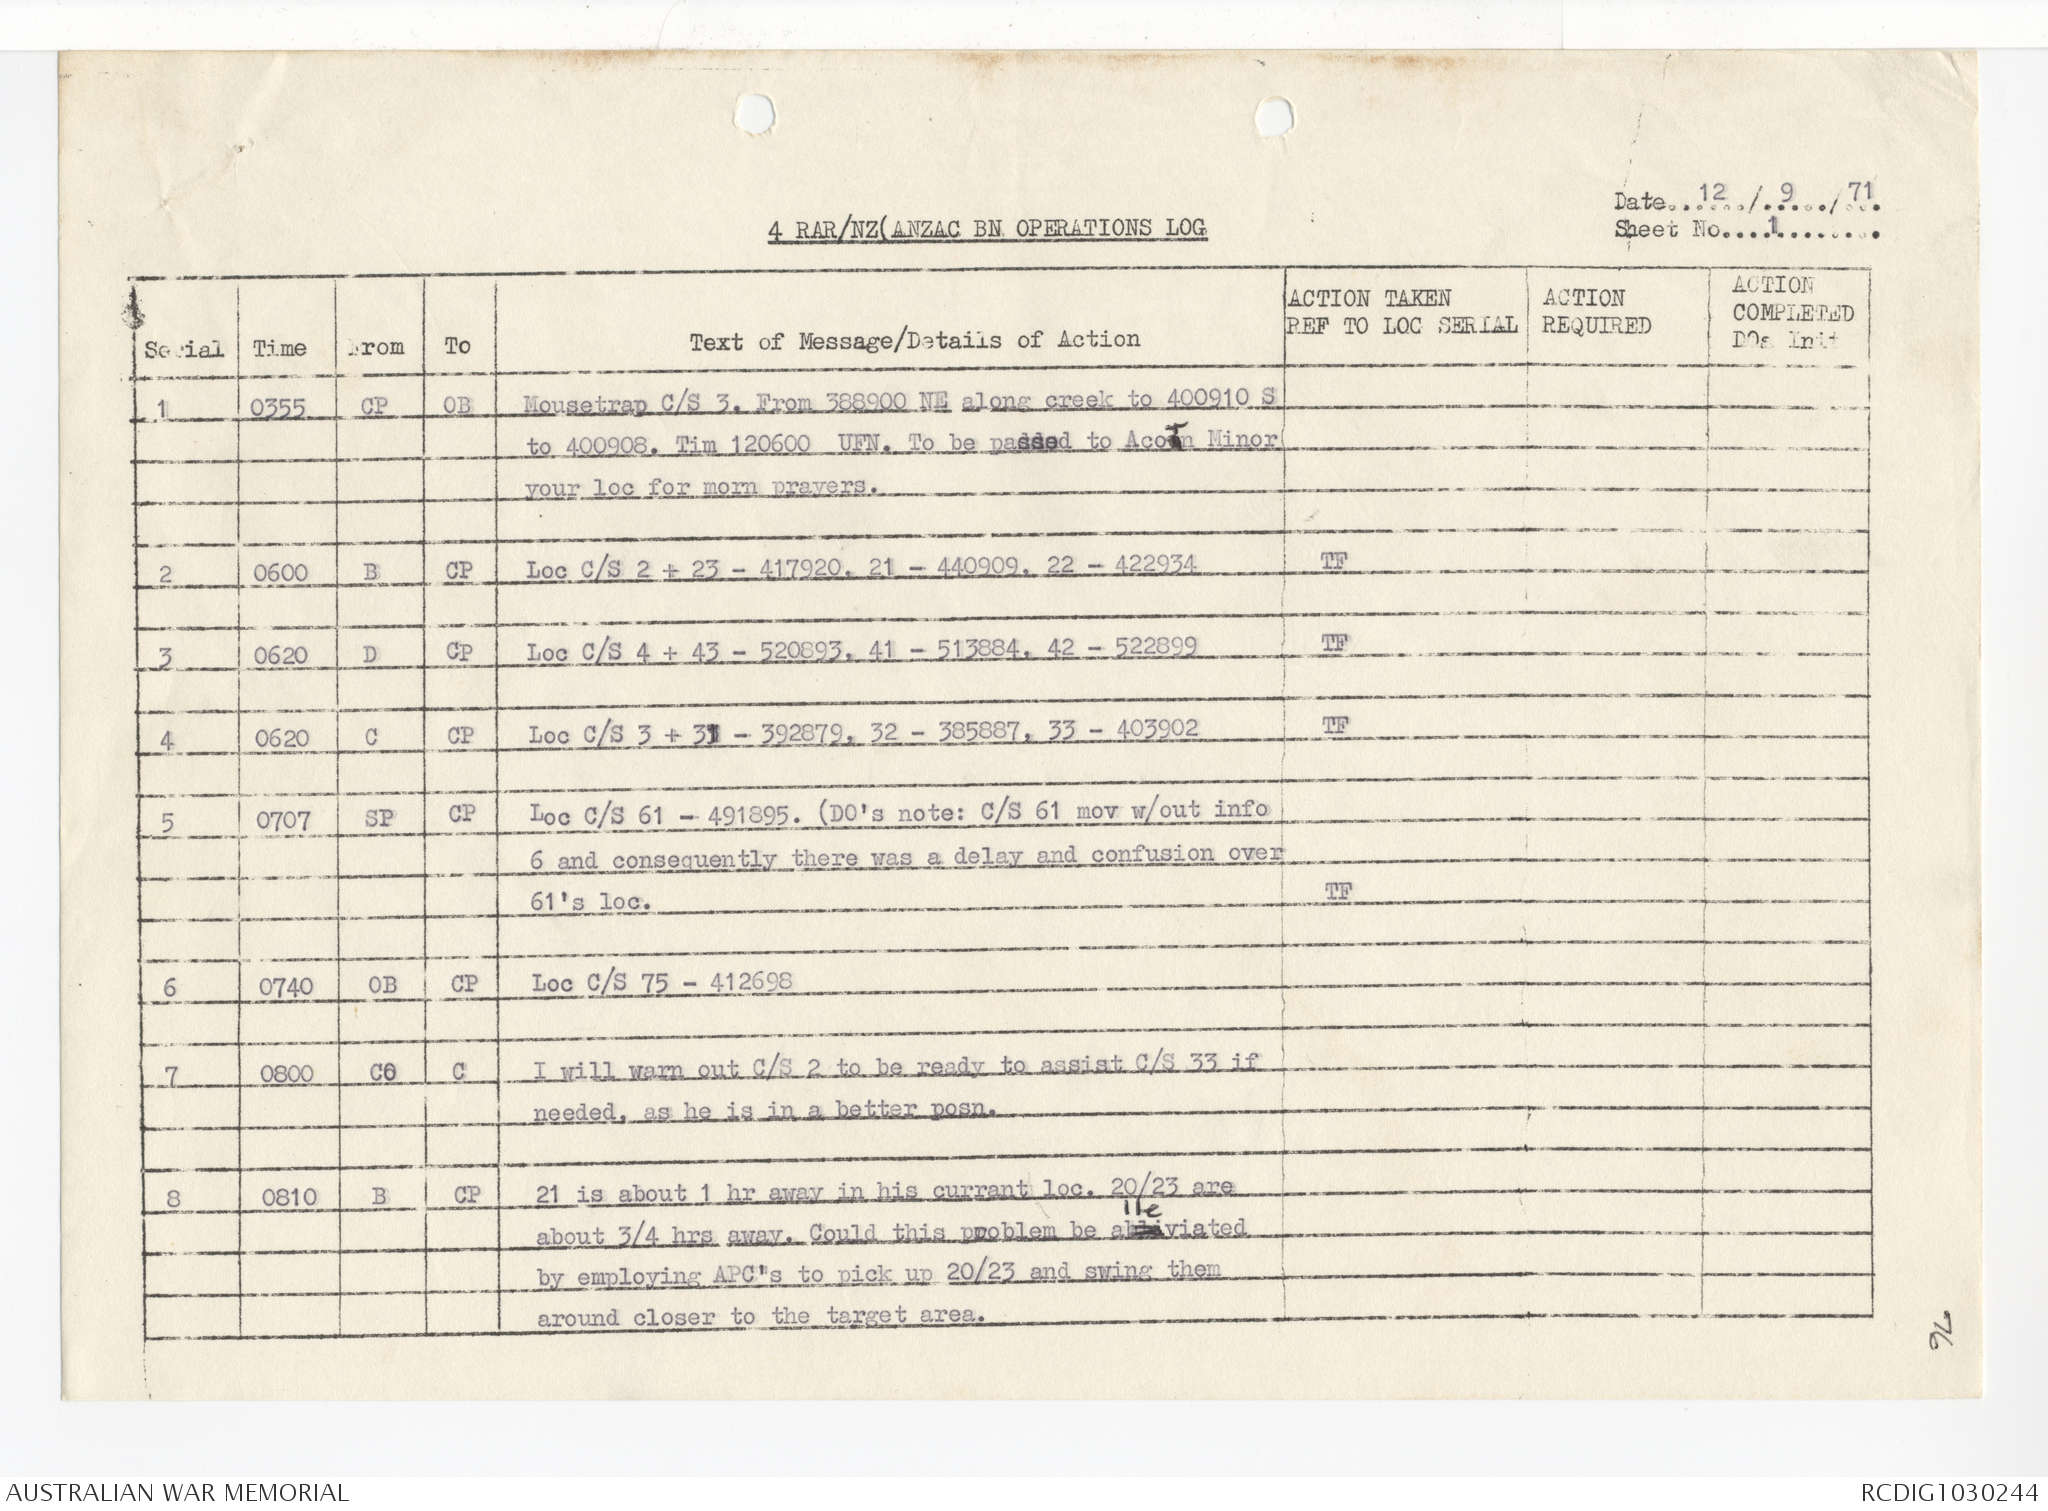 Date...12.../...9.../...71
Sheet No....1..........
4 RAR/NZ(ANZAC BN OPERATIONS LOG
Serial Time From To Text of Message/Details of Action ACTION TAKEN REF TO LOC SERIAL ACTION REQUIRED ACTION COMPLETED DOs Init
1 0355 CP OB Mousetrap C/S 3. From 388900 NE along creek to 400910 S
to 400908. Tim 120600 UFN. To be passed to Acorn Minor
your loc for morn prayers.
2 0600 B CP Loc C/S 2 + 23 - 417920, 21 - 440909, 22 - 422934 TF
3 0620 D CP Loc C/S 4 + 43 - 520893, 41 - 513884, 42 - 522899 TF
4 0620 C CP Loc C/S 3 + 31 - 392879, 32 - 385887, 33 - 403902 TF
5 0707 SP CP Loc C/S 61 - 491895. (DO's note: C/S 61 mov w/out info
6 and consequently there was a delay and confusion over
61's loc. TF
6 0740 OB CP Loc C/S 75 - 412698
7 0800 CO C I will warn out C/S 2 to be ready to assist C/S 33 if
needed, as he is in a better posn.
8 0810 B CP 21 is about 1 hr away in his currant loc. 20/23 are
about 3/4 hrs away. Could this problem be alleviated
by employing APC"s to pick up 20/23 and swing them
around closer to the target area.
76
AUSTRALIAN WAR MEMORIAL
RCDIG1030244